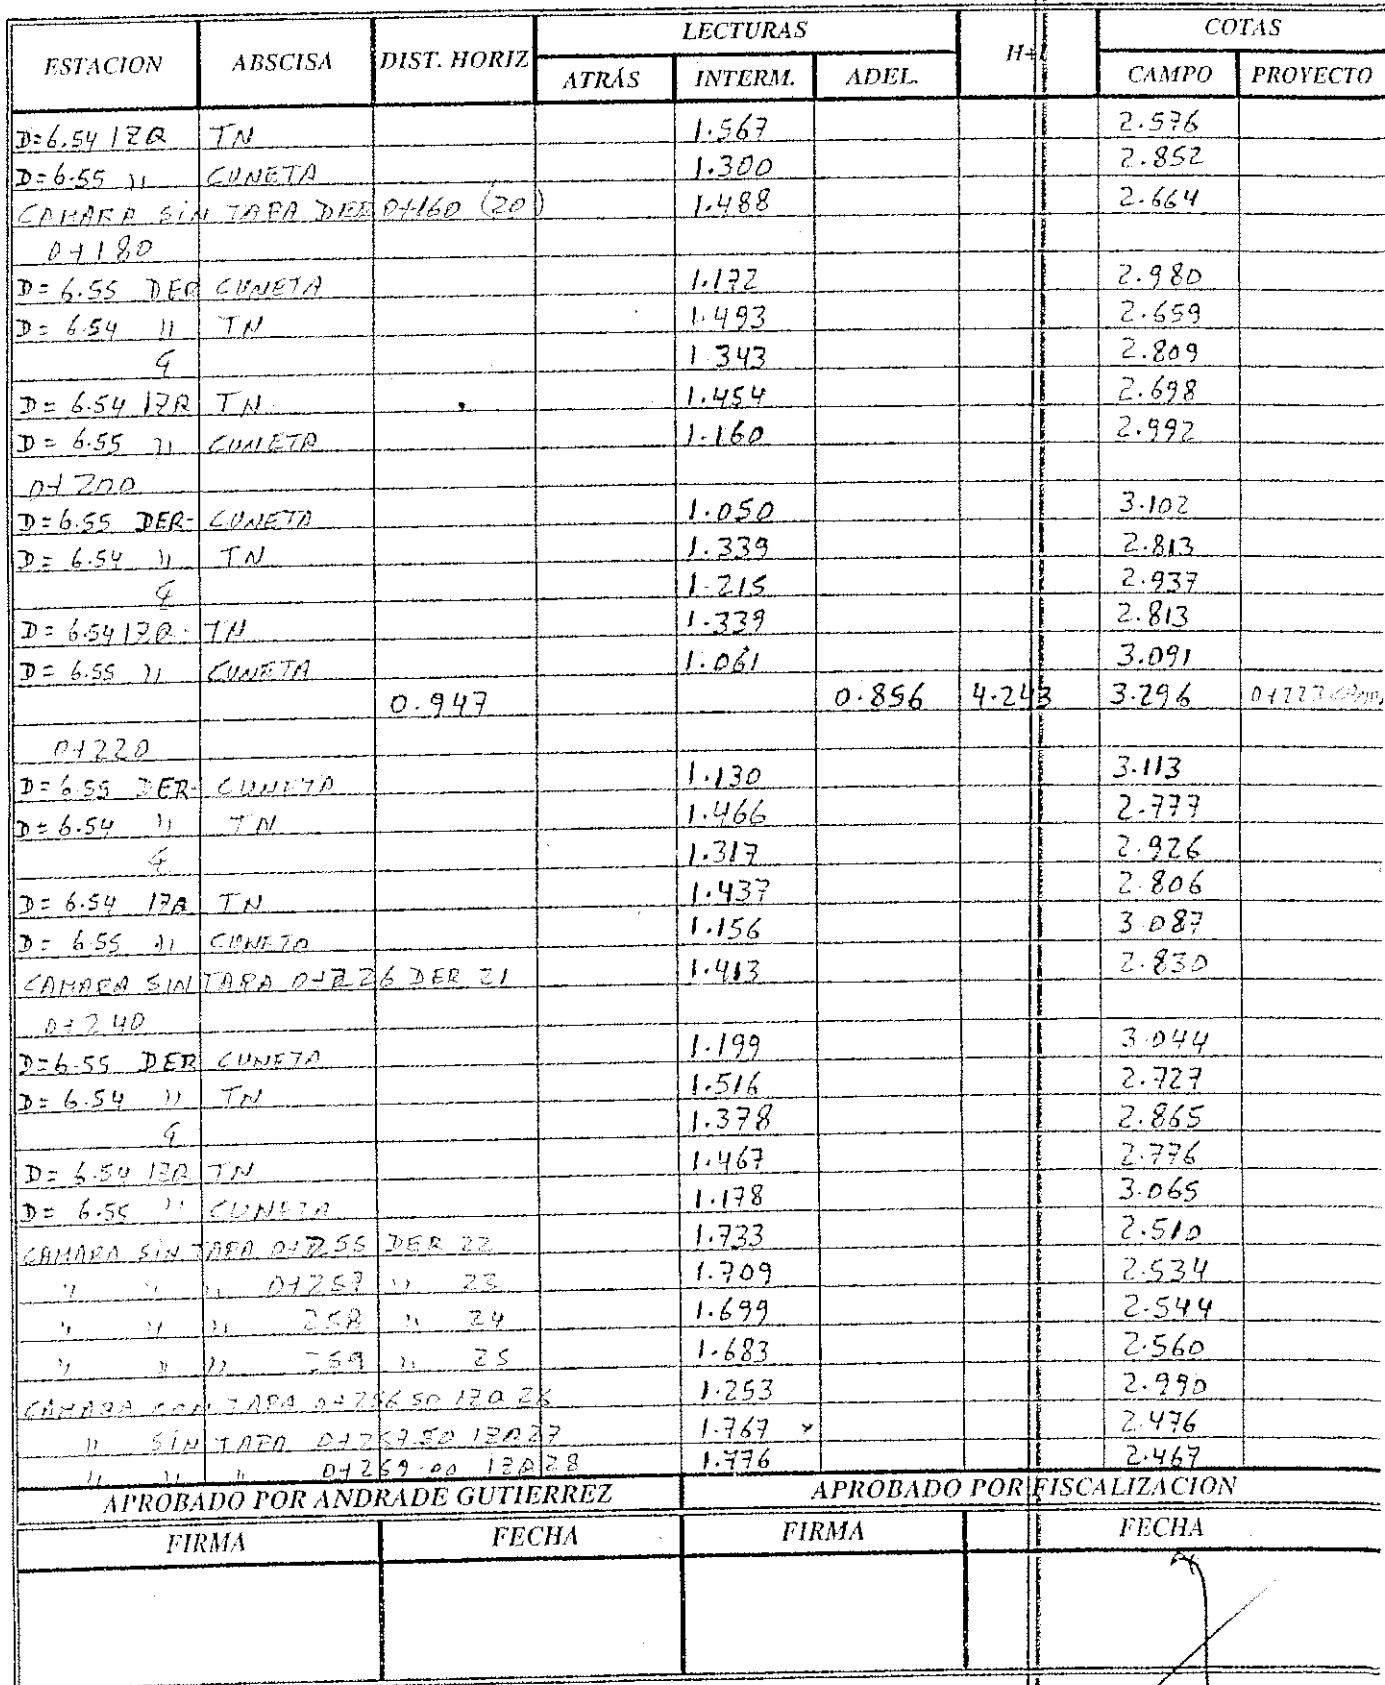 ESTACION ABSCISA DIST. HORIZ LECTURAS H+I COTAS
ATRÁS INTERM. ADEL. CAMPO PROYECTO
D=6.54 IZQ TN 1.567 2.576
D=6.55 " CUNETA 1.300 2.852
CAMARA SIN TAPA DER 0+160 (20) 1.488 2.664
0+180
D=6.55 DER CUNETA 1.172 2.980
D=6.54 " TN 1.493 2.659
℄ 1.343 2.809
D=6.54 IZQ TN 1.454 2.698
D=6.55 " CUNETA 1.160 2.992
0+200
D=6.55 DER- CUNETA 1.050 3.102
D=6.54 " TN 1.339 2.813
℄ 1.215 2.937
D=6.54 IZQ. TN 1.339 2.813
D=6.55 " CUNETA 1.061 3.091
0.947 0.856 4.243 3.296
0+220
D=6.55 DER- CUNETA 1.130 3.113
D=6.54 " TN 1.466 2.777
℄ 1.317 2.926
D=6.54 IZQ TN 1.437 2.806
D=6.55 " CUNETA 1.156 3.087
CAMARA SIN TAPA 0+226 DER 21 1.413 2.830
0+240
D=6.55 DER CUNETA 1.199 3.044
D=6.54 " TN 1.516 2.727
℄ 1.378 2.865
D=6.54 IZQ TN 1.467 2.776
D=6.55 " CUNETA 1.178 3.065
CAMARA SIN TAPA 0+255 DER 22 1.733 2.510
" " " 0+257 " 23 1.709 2.534
" " " 258 " 24 1.699 2.544
" " " 259 " 25 1.683 2.560
CAMARA CON TAPA 0+256.50 IZQ 26 1.253 2.990
" SIN TAPA 0+257.50 IZQ 27 1.767 2.476
" " " 0+259.00 IZQ 28 1.776 2.467
APROBADO POR ANDRADE GUTIERREZ APROBADO POR FISCALIZACION
FIRMA FECHA FIRMA FECHA